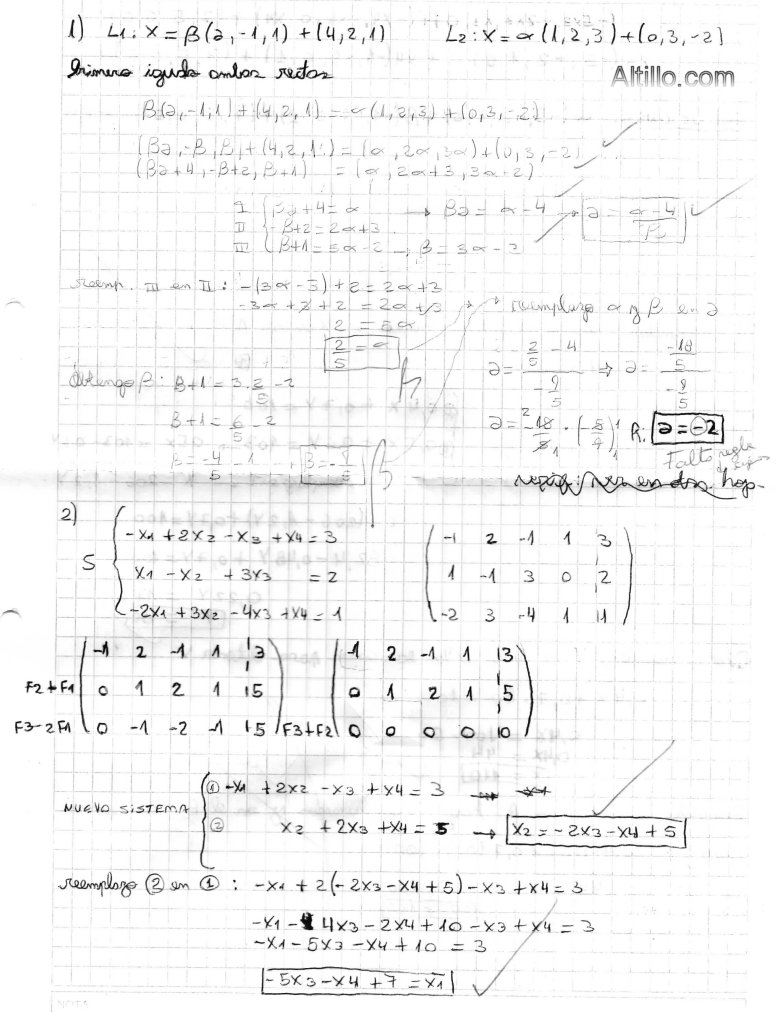 1) L1: X = β(a,-1,1) + (4,2,1) L2: X = α(1,2,3) + (0,3,-2)
Primero igualo ambas rectas
Altillo.com
β(a,-1,1) + (4,2,1) = α(1,2,3) + (0,3,-2)
(βa, -β, β) + (4,2,1) = (α, 2α, 3α) + (0,3,-2)
(βa+4, -β+2, β+1) = (α, 2α+3, 3α-2)
I { βa+4 = α → βa = α-4 → a = α-4/β
II { -β+2 = 2α+3
III { β+1 = 3α-2 → β = 3α-3
reemp. III en II: -(3α-3)+2 = 2α+3
-3α+3+2 = 2α+3 → reemplazo α y β en a
2 = 5α
2/5 = α
a = (2/5 - 4)/(-9/5) ⇒ a = (-18/5)/(-9/5)
Obtengo β: β+1 = 3.2/5 -2
β+1 = 6/5 -2
a = -18/5 . (-5/9) R: a = -2
β = -4/5 - 1 β = -9/5
Falto regla
2)
S { -x1 + 2x2 - x3 + x4 = 3
x1 - x2 + 3x3 = 2
-2x1 + 3x2 - 4x3 + x4 = 1
-1 2 -1 1 3
1 -1 3 0 2
-2 3 -4 1 1
-1 2 -1 1 3
F2+F1 0 1 2 1 5
F3-2F1 0 -1 -2 -1 -5
-1 2 -1 1 3
0 1 2 1 5
F3+F2 0 0 0 0 0
NUEVO SISTEMA
① -x1 + 2x2 - x3 + x4 = 3
② x2 + 2x3 + x4 = 5 → x2 = -2x3 - x4 + 5
reemplazo ② en ①: -x1 + 2(-2x3 - x4 + 5) - x3 + x4 = 3
-x1 - 4x3 - 2x4 + 10 - x3 + x4 = 3
-x1 - 5x3 - x4 + 10 = 3
-5x3 - x4 + 7 = x1
NOTA